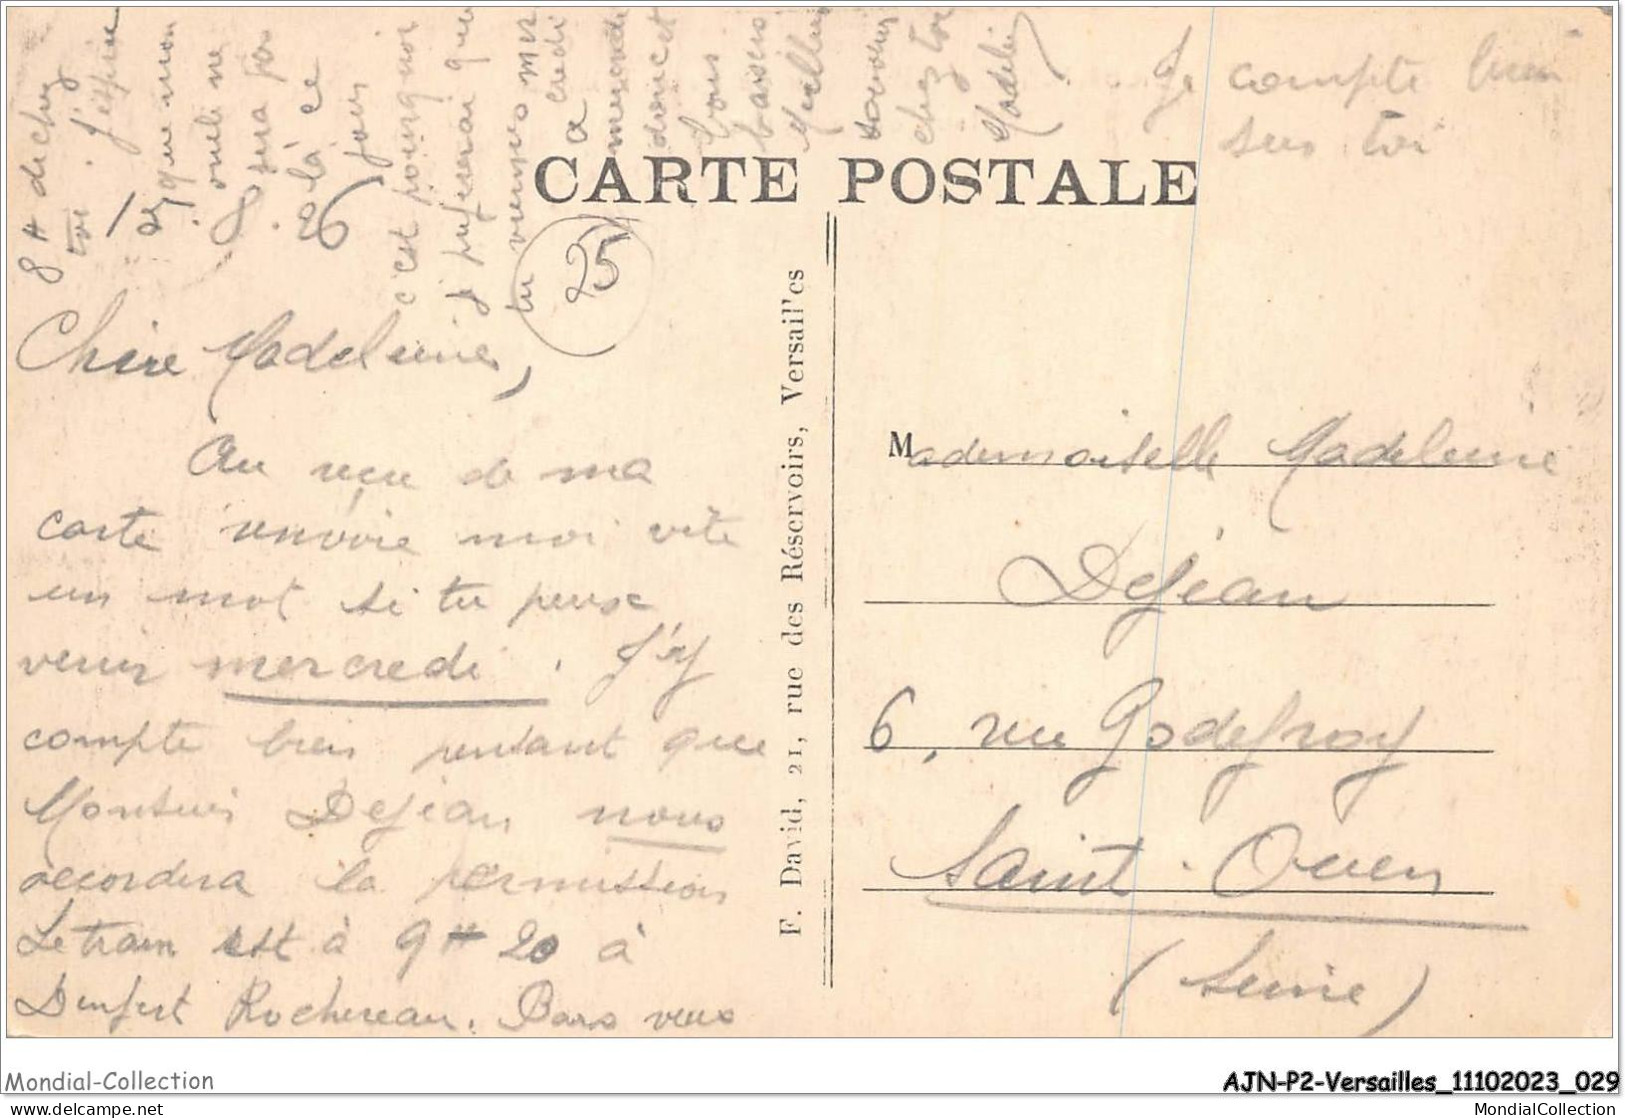 8 H de chez
toi. J'espère
que mon
oncle ne
sera pas
là ce
jour
c'est pourquoi
je préférerai que
tu viennes mer
credi
A
mercredi
donc et
bons
baisers
chez toi
Madelei
Je compte bien
sur toi
CARTE POSTALE
8. 26
25
Chère Madeleine,
Au reçu de ma
carte renvoie moi vite
un mot si tu peux
venir mercredi. J'y
compte bien pensant que
Monsieur Dejean nous
accordera la permission
Le train est à 9 H 20 à
Denfert Rochereau. Pars vers
F. David, 21, rue des Réservoirs, Versailles
Mademoiselle Madeleine
Dejean
6, rue Godefroy
Saint-Ouen
(Seine)
Mondial-Collection
AJN-P2-Versailles_11102023_029
delcampe.net
MondialCollection